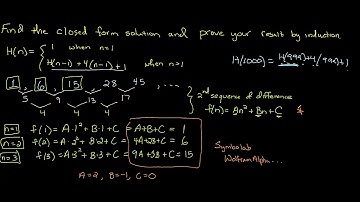 Find the closed form solution and prove your result by induction
H(n) = { 1 when n=1
H(n-1) + 4(n-1)+1 when n>1
H(1000) = H(999)+4(999)+1
1, 6, 15, 28 45 , ....
5 9 13 17
4 4 4
2nd sequence of difference
f(n) = An² + Bn + C
n=1 f(1) = A·1² + B·1 + C = A+B+C = 1
n=2 f(2) = A·2² + B·2 + C = 4A+2B+C = 6
n=3 f(3) = A·3² + B·3 + C = 9A+3B+C = 15
A=2, B=-1, C=0
Symbolab
WolframAlpha...